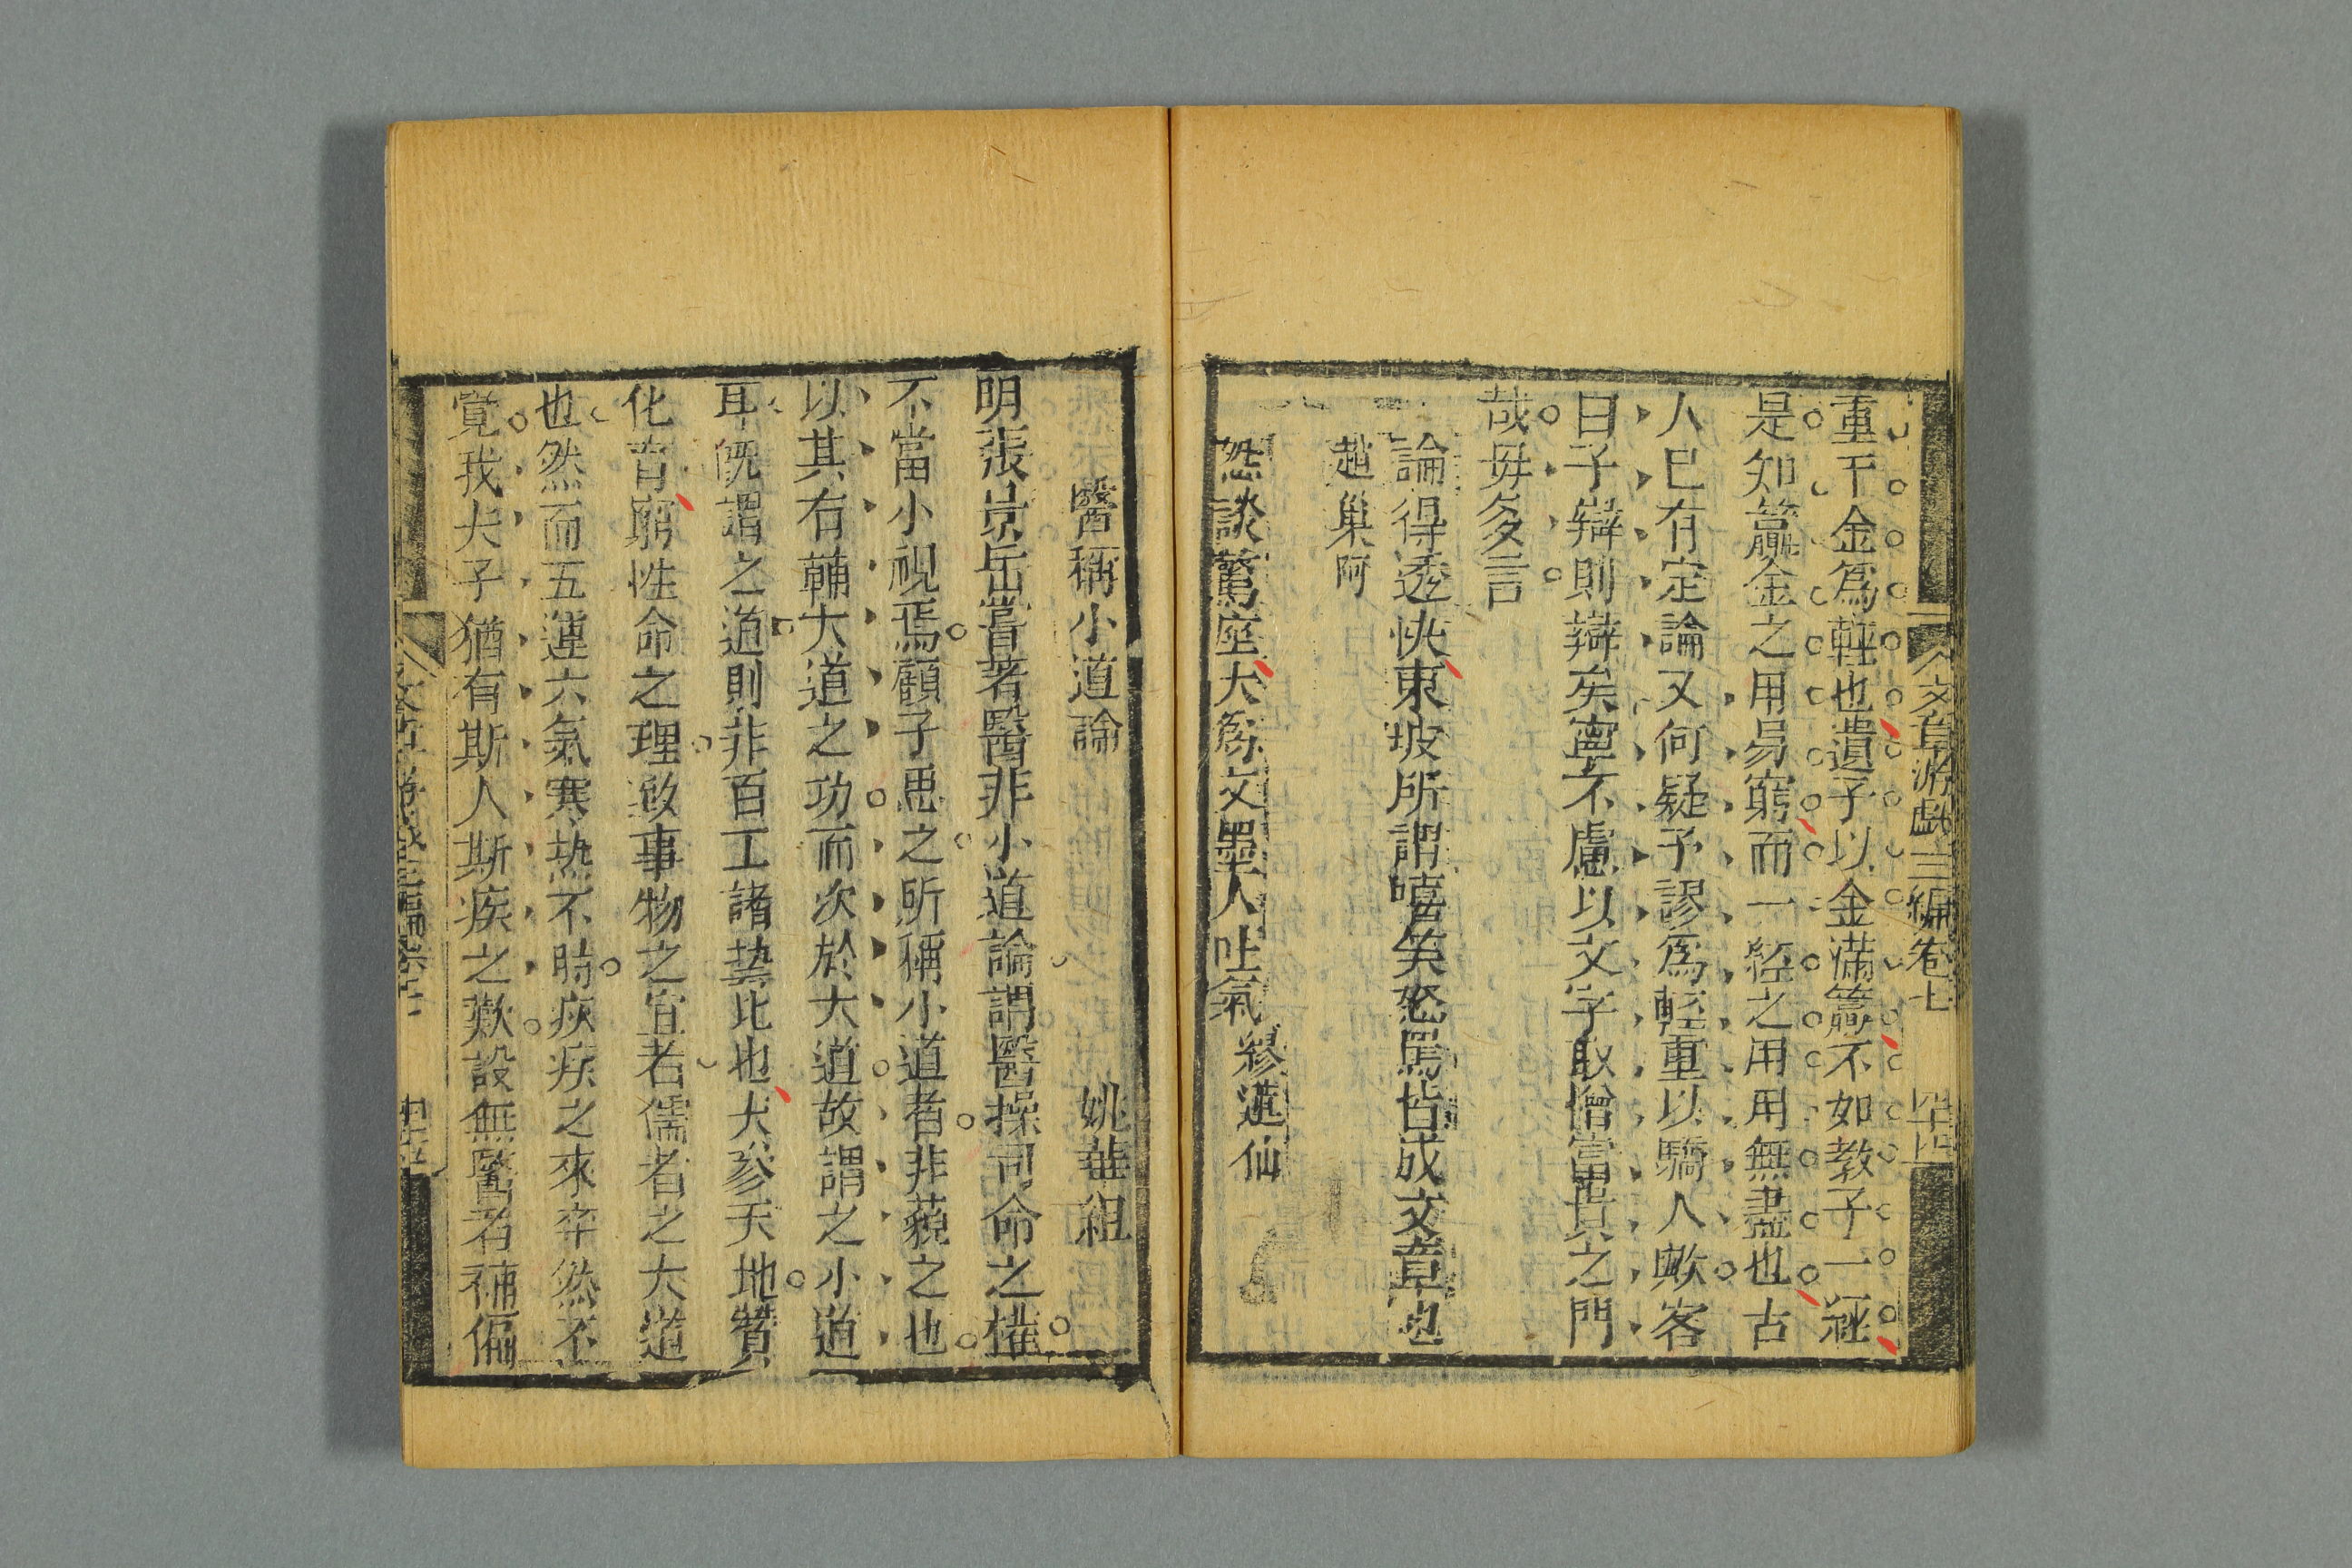 文章游戲三編卷七 四十四
重千金爲輕也遺子以金滿籯不如教子一經
是知籯金之用易窮而一經之用用無盡也古
人已有定論又何疑予謬爲輕重以驕人歟客
曰子辯則辯矣寧不慮以文字取憎富貴之門
哉毋多言
論得透快東坡所謂嘻笑怒罵皆成文章也
趙巢阿
憨談驚座大爲文墨人吐氣 繆蓮仙
醫稱小道論 姚華祖
明張景岳嘗著醫非小道論謂醫操司命之權
不當小視焉顧子思之所稱小道者非藐之也
以其有輔大道之功而次於大道故謂之小道
耳既謂之道則非百工諸藝比也夫參天地贊
化育窮性命之理致事物之宜者儒者之大道
也然而五運六氣寒熱不時疾疢之來卒然不
覺我夫子猶有斯人斯疾之歎設無醫者補偏
文章游戲三編卷七 四十五